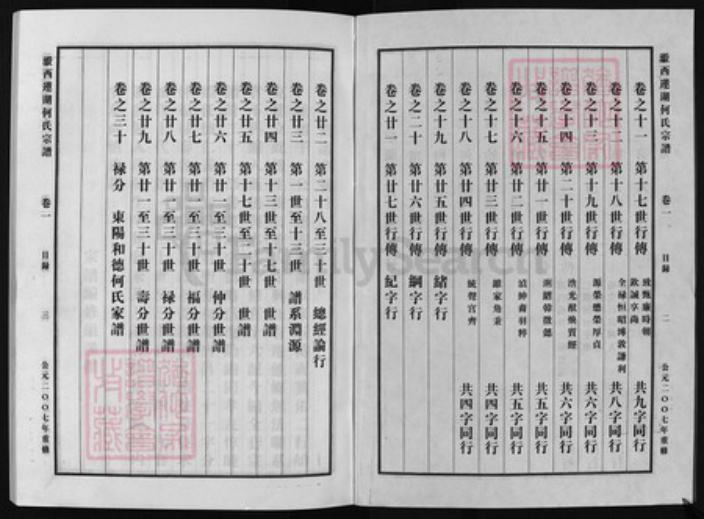 西蓮湖何氏宗譜 卷一 目錄 二 公元二〇〇七年重修
卷之十一 第十七世行傳 共九字同行
卷之十二 第十八世行傳 共八字同行
卷之十三 第十九世行傳 共六字同行
卷之十四 第二十世行傳 共六字同行
卷之十五 第廿一世行傳 共五字同行
卷之十六 第廿二世行傳 共五字同行
卷之十七 第廿三世行傳 共四字同行
卷之十八 第廿四世行傳 共四字同行
卷之十九 第廿五世行傳 緒字行
卷之二十 第廿六世行傳 綱字行
卷之廿一 第廿七世行傳 紀字行
卷之廿二 第二十八至三十世 總經論行
卷之廿三 第一世至十三世 譜系淵源
卷之廿四 第十三世至十七世 世譜
卷之廿五 第十七世至廿一世 世譜
卷之廿六 第廿一至三十世 仲分世譜
卷之廿七 第廿一至三十世 福分世譜
卷之廿八 第廿一至三十世 祿分世譜
卷之廿九 第廿一至三十世 壽分世譜
卷之三十 祿分 東陽和德何氏家譜
西蓮湖何氏宗譜 卷一 目錄 三 公元二〇〇七年重修
FamilySearch